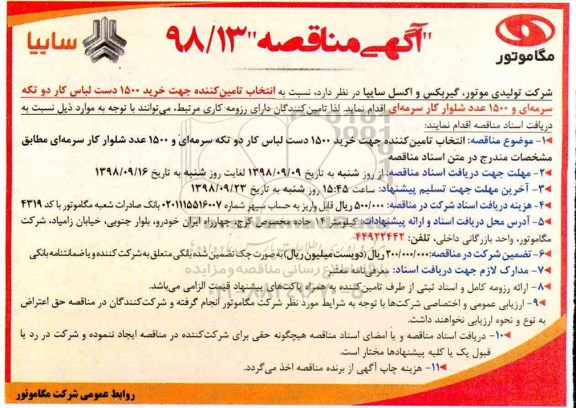 "آگهی مناقصه" ۹۸/۱۳
سایپا
مگاموتور
شرکت تولیدی موتور، گیربکس و اکسل سایپا در نظر دارد، نسبت به انتخاب تامین‌کننده جهت خرید ۱۵۰۰ دست لباس کار دو تکه
سرمه‌ای و ۱۵۰۰ عدد شلوار کار سرمه‌ای اقدام نماید. لذا تامین‌کنندگان دارای رزومه کاری مرتبط، می‌توانند با توجه به موارد ذیل نسبت به
دریافت اسناد مناقصه اقدام نمایند:
۱- موضوع مناقصه: انتخاب تامین‌کننده جهت خرید ۱۵۰۰ دست لباس کار دو تکه سرمه‌ای و ۱۵۰۰ عدد شلوار کار سرمه‌ای مطابق
مشخصات مندرج در متن اسناد مناقصه
۲- مهلت جهت دریافت اسناد مناقصه: از روز شنبه به تاریخ ۱۳۹۸/۰۹/۰۹ لغایت روز شنبه به تاریخ ۱۳۹۸/۰۹/۱۶
۳- آخرین مهلت جهت تسلیم پیشنهاد: ساعت ۱۵:۴۵ روز شنبه به تاریخ ۱۳۹۸/۰۹/۲۳
۴- هزینه دریافت اسناد مناقصه: ۵۰۰/۰۰۰ ریال قابل واریز به حساب سپهر شماره ۰۲۰۱۱۱۵۵۱۶۰۰۷ بانک صادرات شعبه مگاموتور با کد ۴۳۱۹
۵- آدرس محل دریافت اسناد و ارائه پیشنهادات: کیلومتر جاده مخصوص کرج، چهارراه ایران خودرو، بلوار جنوبی، خیابان زامیاد، شرکت
مگاموتور، واحد بازرگانی داخلی، تلفن: ۴۴۹۲۲۴۴۲
۶- تضمین شرکت در مناقصه: ۲۰۰/۰۰۰/۰۰۰ ریال (دویست میلیون ریال) به صورت چک تضمین شده بانکی متعلق به شرکت‌کننده و یا ضمانتنامه بانکی
۷- مدارک لازم جهت دریافت اسناد: معرفی‌نامه معتبر
۸- ارائه رزومه کامل و اسناد ثبتی از طرف تامین‌کننده به همراه پاکت‌های پیشنهاد قیمت الزامی می‌باشد.
۹- ارزیابی عمومی و اختصاصی شرکت‌ها با توجه به شرایط مورد نظر شرکت مگاموتور انجام گرفته و شرکت‌کنندگان در مناقصه حق اعتراض
به نوع و نحوه ارزیابی نخواهند داشت.
۱۰- دریافت اسناد مناقصه و یا امضای اسناد مناقصه هیچگونه حقی برای شرکت‌کننده در مناقصه ایجاد ننموده و شرکت در رد یا
قبول یک یا کلیه پیشنهادها مختار است.
۱۱- هزینه چاپ آگهی از برنده مناقصه اخذ می‌گردد.
روابط عمومی شرکت مگاموتور